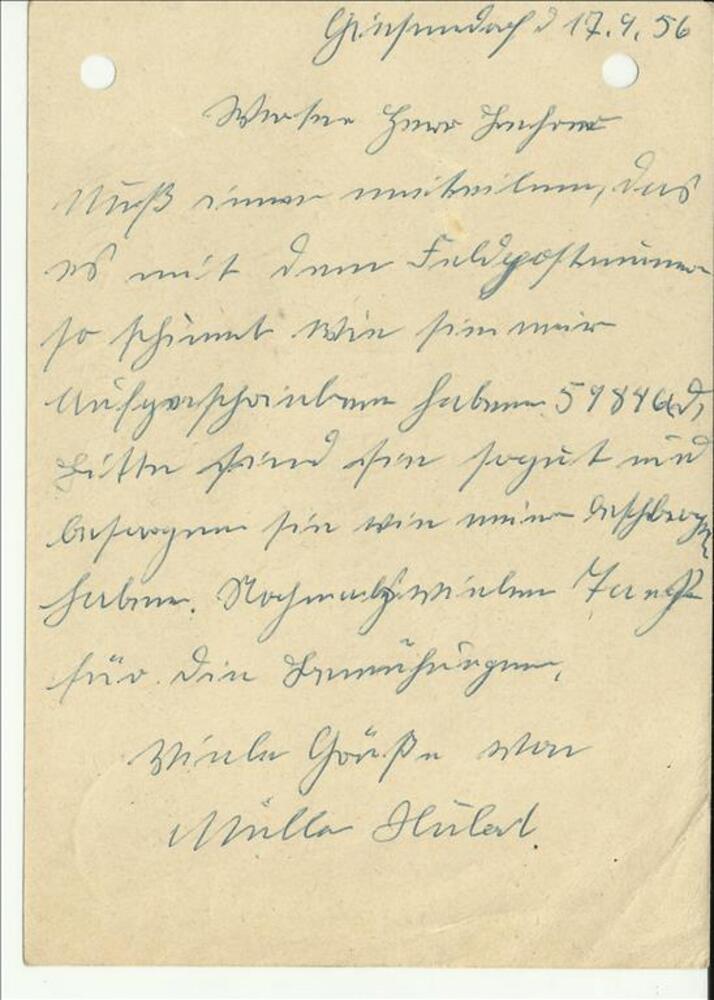 d 17.9.56
Werter Herr
Muß inen mitteilen, das
es mit dem Feldpostnummer
so schtimmt wie sie mir
Aufgeschrieben haben 59846 d,
Bitte sind sie so gut und
besorgen sie wie mir
haben. Nochmals vielen Tank
für die Bemühungen,
Viele Grüße von
Müller